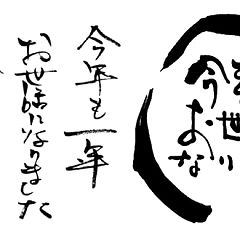 今
お世
なり
今年も一年
お世話になりました